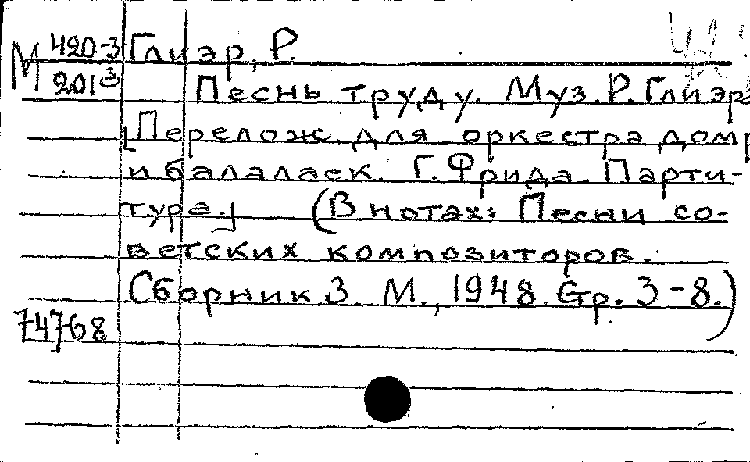 М 420-3 Глиэр, Р.
201 3 Песнь труду. Муз. Р. Глиэра
[Перелож. для оркестра домр
и балалаек. Г. Фрида. Парти-
тура.] (В нотах: Песни со-
ветских композиторов.
Сборник 3. М., 1948. Стр. 3-8.)
74768